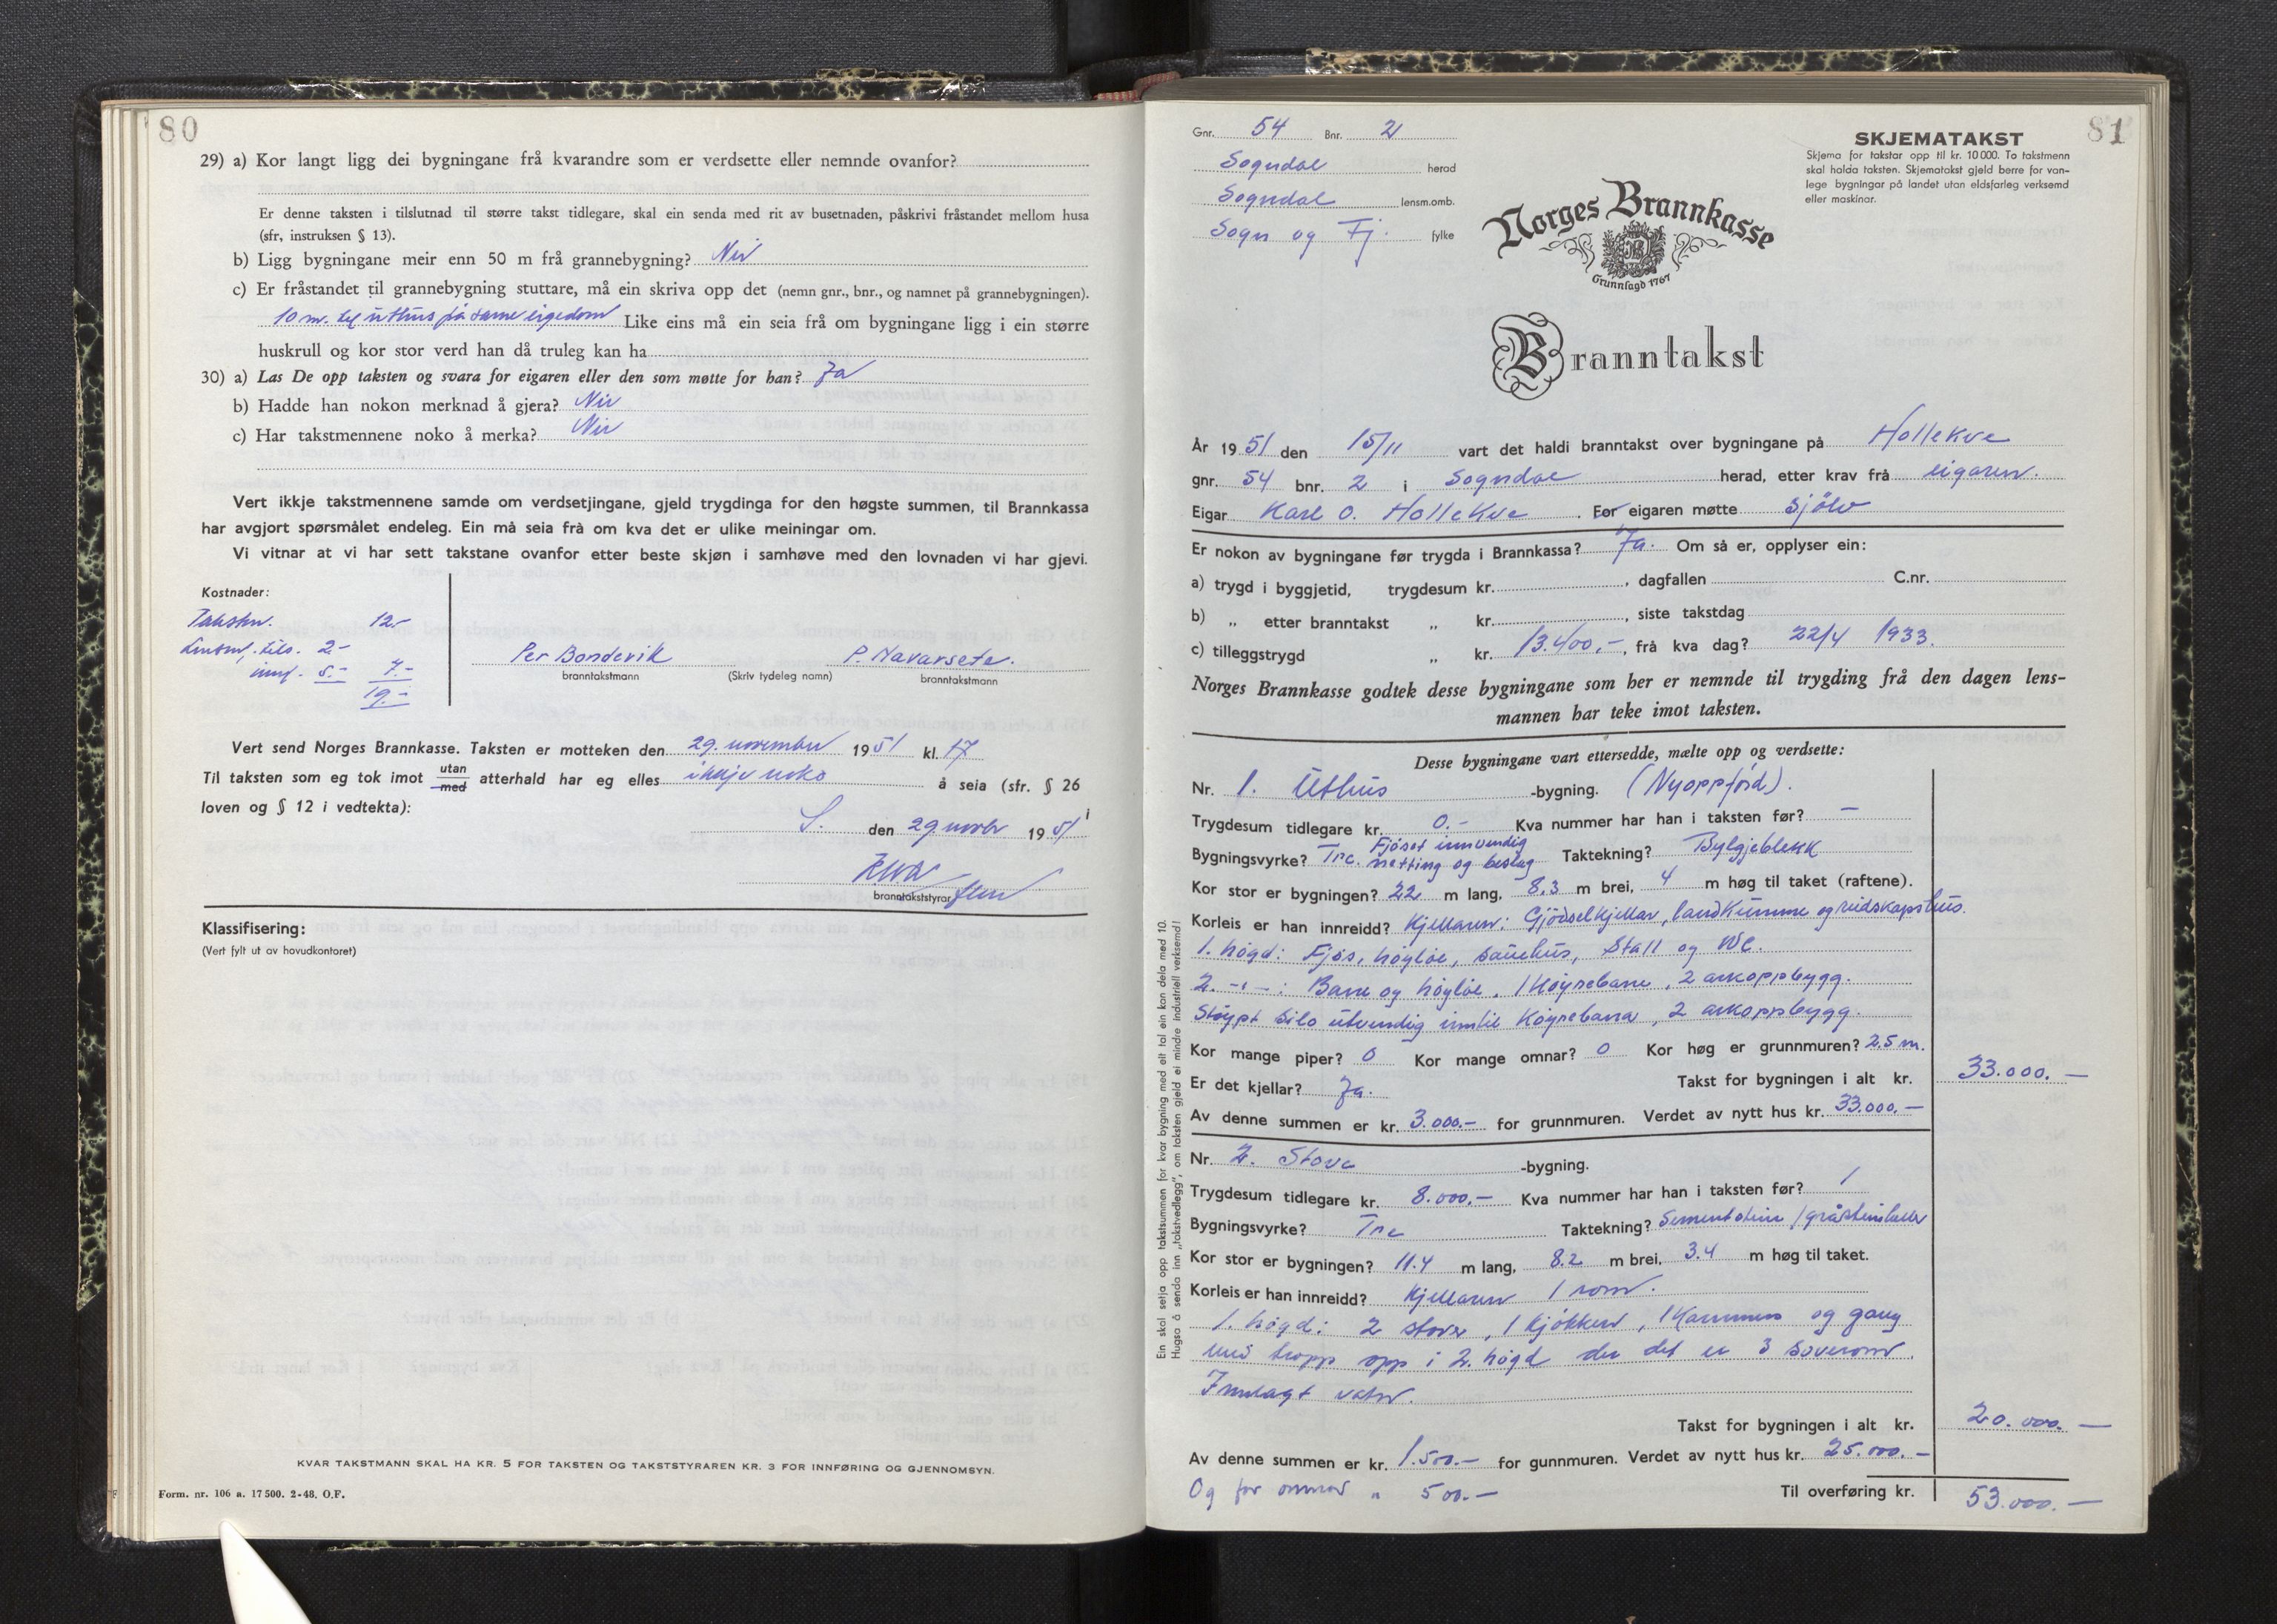 80
29) a) Kor langt ligg dei bygningane frå kvarandre som er verdsette eller nemnde ovanfor?
Er denne taksten i tilslutnad til større takst tidlegare, skal ein senda med rit av busetnaden, påskrivi fråstandet mellom husa
(sfr, instruksen § 13).
b) Ligg bygningane meir enn 50 m frå grannebygning? Nei
c) Er fråstandet til grannebygning stuttare, må ein skriva opp det (nemn gnr., bnr., og namnet på grannebygningen).
10 m. til uthus på same eigedom Like eins må ein seia frå om bygningane ligg i ein større
huskrull og kor stor verd han då truleg kan ha
30) a) Las De opp taksten og svara for eigaren eller den som møtte for han? Ja
b) Hadde han nokon merknad å gjera? Nei
c) Har takstmennene noko å merka? Nei
Vert ikkje takstmennene samde om verdsetjingane, gjeld trygdinga for den høgste summen, til Brannkassa
har avgjort spørsmålet endeleg. Ein må seia frå om kva det er ulike meiningar om.
Vi vitnar at vi har sett takstane ovanfor etter beste skjøn i samhøve med den lovnaden vi har gjevi.
Kostnader:
Takstm. 12.-
Lensm. tils. 2.-
innf. 5.- 7.-
19.-
Per Bondevik P. Navarsete.
branntakstmann (Skriv tydeleg namn) branntakstmann
Vert send Norges Brannkasse. Taksten er motteken den 29. november 1951 kl. 17
Til taksten som eg tok imot utan/med atterhald har eg elles ikkje noko å seia (sfr. § 26 i
loven og § 12 i vedtekta):
S. den 29 novbr 1951
branntakststyrar
Klassifisering:
(Vert fylt ut av hovudkontoret)
KVAR TAKSTMANN SKAL HA KR. 5 FOR TAKSTEN OG TAKSTSTYRAREN KR. 3 FOR INNFØRING OG GJENNOMSYN.
Form. nr. 106 a. 17 500. 2-48. O.F.
81
Gnr. 54 Bnr. 2
Sogndal herad
Sogndal lensm.omb.
Sogn og Fj. fylke
SKJEMATAKST
Skjema for takstar opp til kr. 10 000. To takstmenn
skal halda taksten. Skjematakst gjeld berre for van-
lege bygningar på landet utan eldsfarleg verksemd
eller maskinar.
Norges Brannkasse
Grunnlagd 1767
Branntakst
År 1951 den 15/11 vart det haldi branntakst over bygningane på Hollekve
gnr. 54 bnr. 2 i Sogndal herad, etter krav frå eigaren.
Eigar Karl O. Hollekve. For eigaren møtte sjölv
Er nokon av bygningane før trygda i Brannkassa? Ja. Om så er, opplyser ein:
a) trygd i byggjetid, trygdesum kr. , dagfallen C.nr.
b) „ etter branntakst „ kr. , siste takstdag
c) tilleggstrygd „ kr. 13.400,-, frå kva dag? 22/4 1933.
Norges Brannkasse godtek desse bygningane som her er nemnde til trygding frå den dagen lens-
mannen har teke imot taksten.
Desse bygningane vart ettersedde, mælte opp og verdsette:
Nr. 1. Uthus -bygning. (Nyoppförd).
Trygdesum tidlegare kr. 0.- Kva nummer har han i taksten før? -
Bygningsvyrke? Tre. Fjöset innvendig netting og beslag Taktekning? Bylgjeblekk
Kor stor er bygningen? 22 m lang, 8.3 m brei, 4 m høg til taket (raftene).
Korleis er han innreidd? Kjellaren: Gjödselkjellar, landkumme og reidskapshus.
1. högd: Fjös, höyløe, sauehus, Stall og WC.
2. -"-: Barre og höyløe. 1 Köyrebane, 2 arkoppbygg.
Stöypt silo utvendig inntil Köyrebana, 2 arkoppbygg.
Kor mange piper? 0 Kor mange omnar? 0 Kor høg er grunnmuren? 2.5 m.
Er det kjellar? Ja. Takst for bygningen i alt kr. 33.000.-
Av denne summen er kr. 3.000.- for grunnmuren. Verdet av nytt hus kr. 33.000.-
Nr. 2. Stove -bygning.
Trygdesum tidlegare kr. 8.000.- Kva nummer har han i taksten før? 1
Bygningsvyrke? Tre Taktekning? Sementstein / gråsteinheller
Kor stor er bygningen? 11.4 m lang, 8.2 m brei, 3.4 m høg til taket.
Korleis er han innreidd? Kjellaren 1 rom.
1. högd: 2 stover, 1 kjökken, 1 Kammers og gang
med tropp opp i 2. högd der det er 3 soverom.
Innlagt vatn.
Takst for bygningen i alt kr. 20.000.-
Av denne summen er kr. 1.500.- for gunnmuren. Verdet av nytt hus kr. 25.000.-
Og for omnar " 500.-
Til overføring kr. 53.000.-
Ein skal setja opp takstsummen for kvar bygning med eit tal ein kan dela med 10.
Hugsa å senda inn „takstvedlegg”, om taksten gjeld ei mindre industriell verksemd!